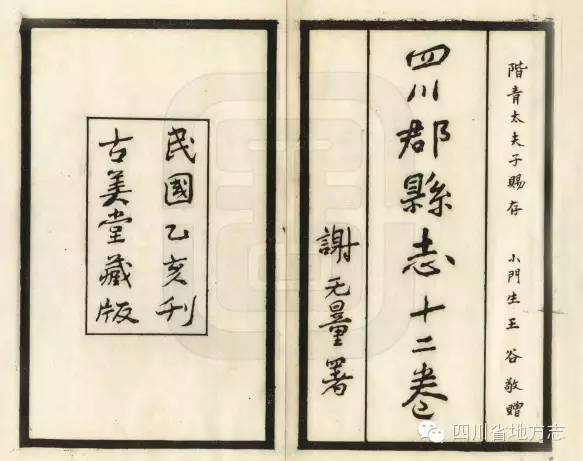 階青太夫子賜存　小門生王谷敬贈
四川郡縣志十二卷
謝无量署
民國乙亥刊
古美堂藏版
四川省地方志